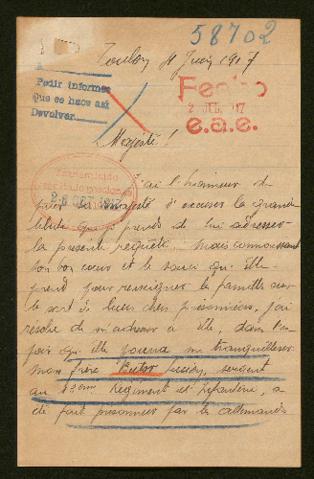 58702
Toulon 4 Juin 1917
Pedir informes
que se hace así
Devolver
Fecho
2 JUL 917
e.a.e.
Majesté !
26 OCT 1917
J'ai l'honneur de
prier sa Majesté d'excuser la grande
liberté que je prends de lui adresser
la présente requête, mais connaissant
son bon coeur et le souci qu'Elle
prend pour renseigner les familles sur
le sort de leurs chers prisonniers, j'ai
résolu de m'adresser à Elle, dans l'es-
poir qu'Elle pourra me tranquilliser
Mon frère Victor sergent
au Régiment d'infanterie, a
été fait prisonnier par les allemands